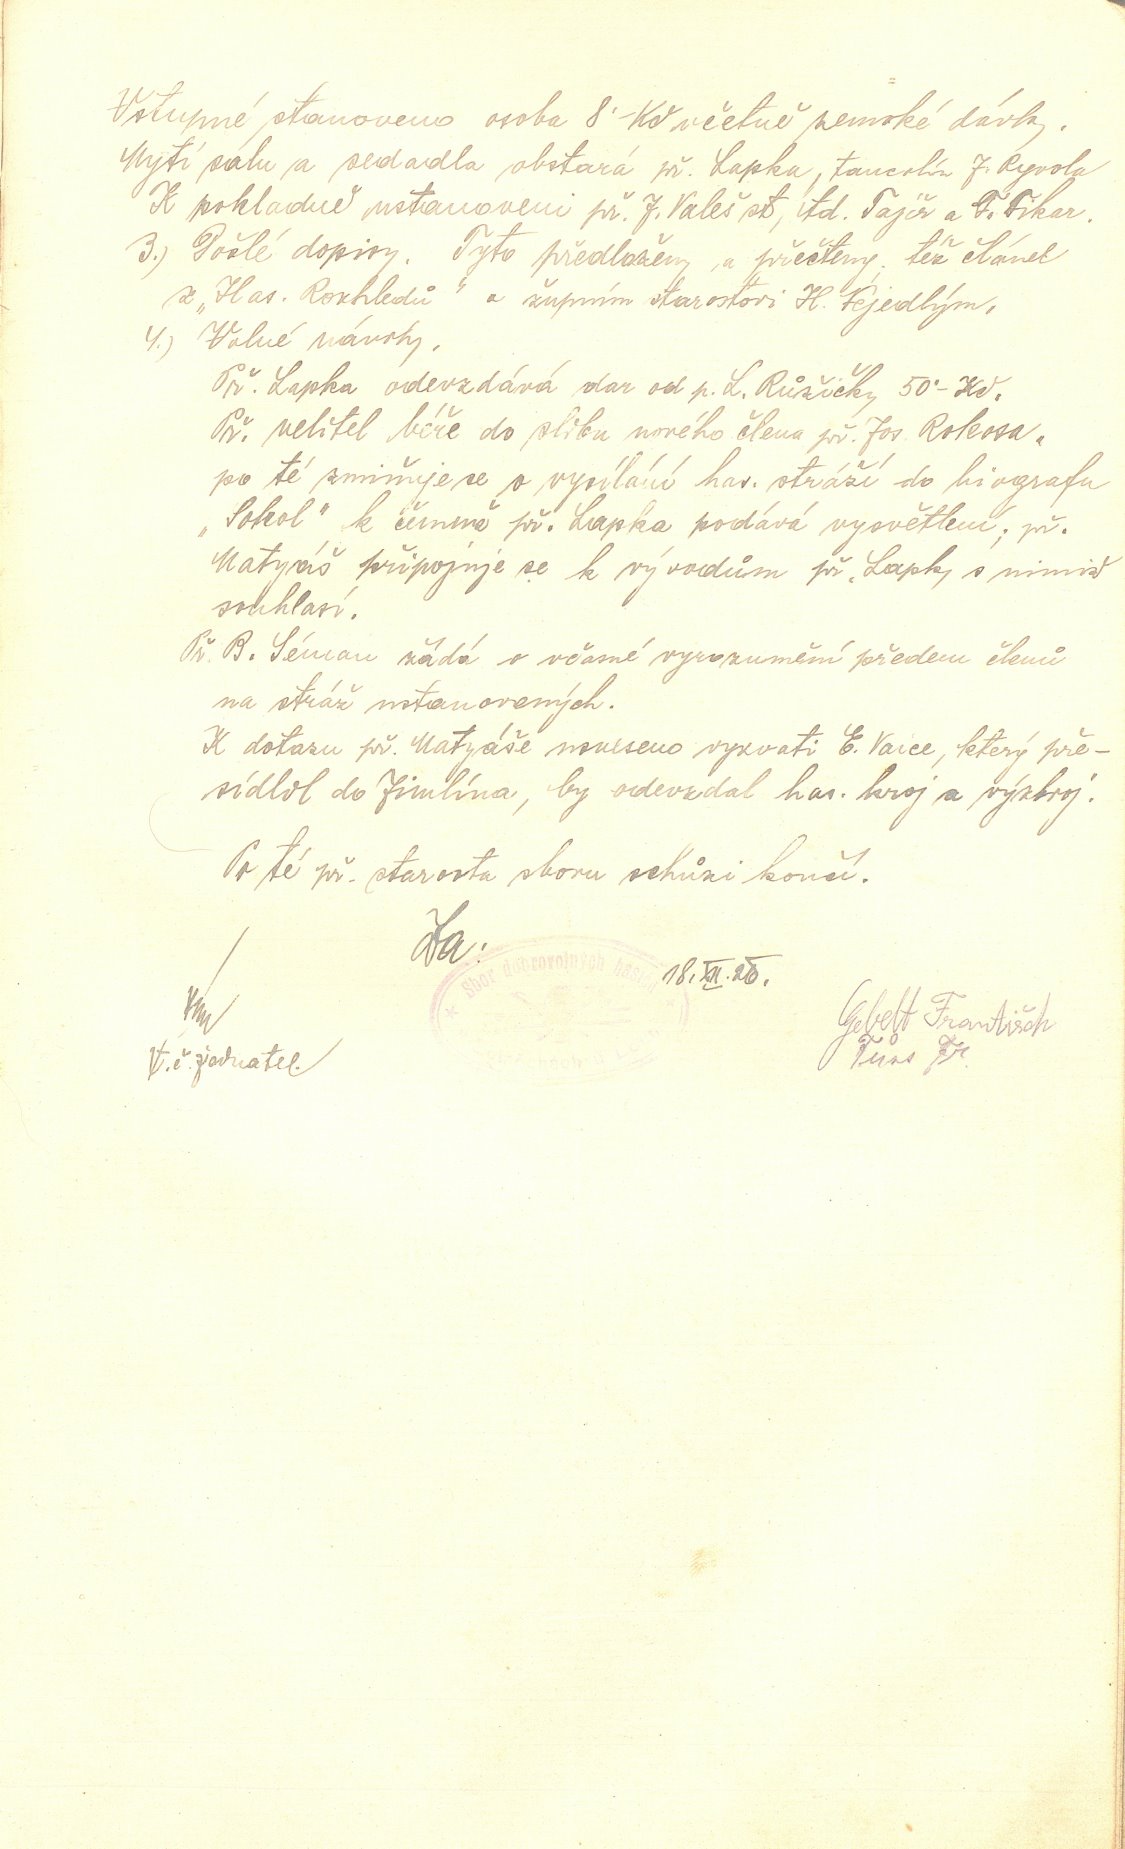 Vstupné stanoveno osoba 8·- Kč včetně zemské dávky.
Mytí sálu a sedadla obstará př. Lapka, tancolín J. Ryvola
K pokladně ustanoveni př. J. Valeš st, Ad. Tajčr a F. Fikar.
3.) Došlé dopisy. Tyto předloženy a přečteny, též článek
z „Has. Rozhledů" o župním starostovi H. Nejedlým.
4.) Volné návrhy.
Př. Lapka odevzdává dar od p. L. Růžičky 50·- Kč.
Př. velitel béře do slibu nového člena př. Jos. Rokosa.
po té zmiňuje se o vysílání has. stráží do biografu
„Sokol" k čemuž př. Lapka podává vysvětlení; př.
Matyáš připojuje se k vývodům př. Lapky s nimiž
souhlasí.
Př. B. Séman žádá o včasné vyrozumění předem členů
na stráž ustanovených.
K dotazu př. Matyáše usneseno vyzvati E. Vaice, který pře-
sídlil do Jimlína, by odevzdal has. kroj a výzbroj.
Po té př. starosta sboru schůzi končí.
Za:
Sbor dobrovolných hasičů
18. XII. 26.
t. č. jednatel.
Gebelt František
Tůks Fr.